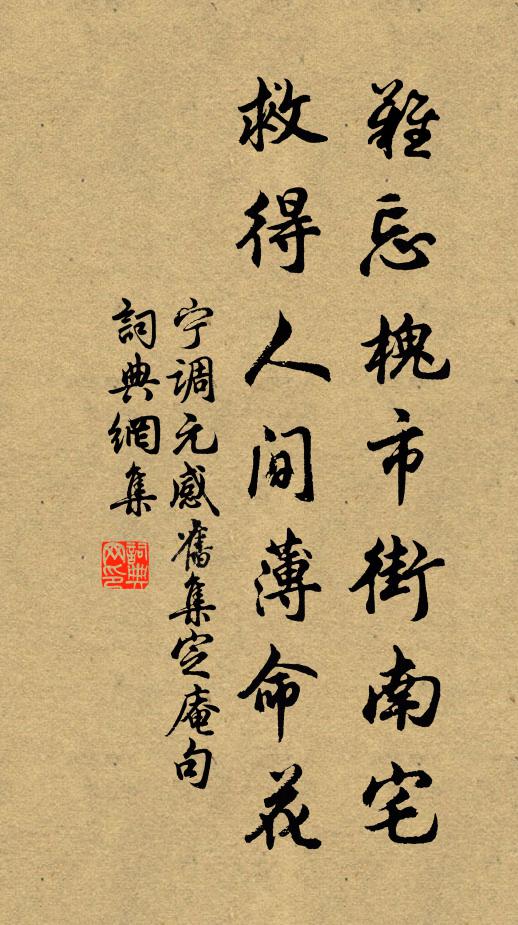 難忘槐市街南宅
救得人间薄命花
宁调元感舊集定庵句
詞典網集
詞典
网印